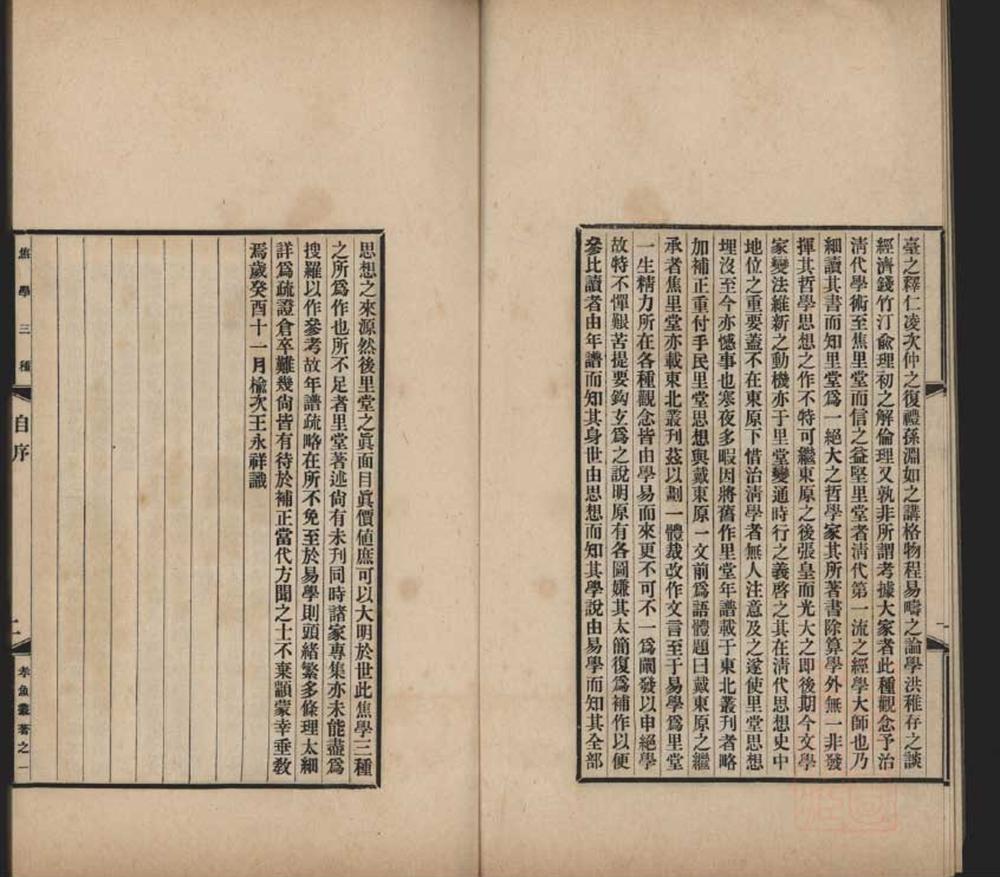 臺之釋仁凌次仲之復禮孫淵如之講格物程易疇之論學洪稚存之談
經濟錢竹汀俞理初之解倫理又孰非所謂考據大家者此種觀念予治
淸代學術至焦里堂而信之益堅里堂者淸代第一流之經學大師也乃
細讀其書而知里堂爲一絕大之哲學家其所著書除算學外無一非發
揮其哲學思想之作不特可繼東原之後張皇而光大之卽後期今文學
家變法維新之動機亦于里堂變通時行之義啓之其在淸代思想史中
地位之重要蓋不在東原下惜治淸學者無人注意及之遂使里堂思想
埋沒至今亦憾事也寒夜多暇因將舊作里堂年譜載于東北叢刊者略
加補正重付手民里堂思想與戴東原一文前爲語體題曰戴東原之繼
承者焦里堂亦載東北叢刊茲以劃一體裁改作文言至于易學爲里堂
一生精力所在各種觀念皆由學易而來更不可不一爲闡發以申絕學
故特不憚艱苦提要鈎玄爲之說明原有各圖嫌其太簡復爲補作以便
參比讀者由年譜而知其身世由思想而知其學說由易學而知其全部
思想之來源然後里堂之眞面目眞價値庶可以大明於世此焦學三種
之所爲作也所不足者里堂著述尙有未刊同時諸家專集亦未能盡爲
搜羅以作參考故年譜疏略在所不免至於易學則頭緒繁多條理太細
詳爲疏證倉卒難幾尙皆有待於補正當代方聞之士不棄顓蒙幸垂敎
焉歲癸酉十一月楡次王永祥識
焦學三種
自序
二
孝魚叢著之一